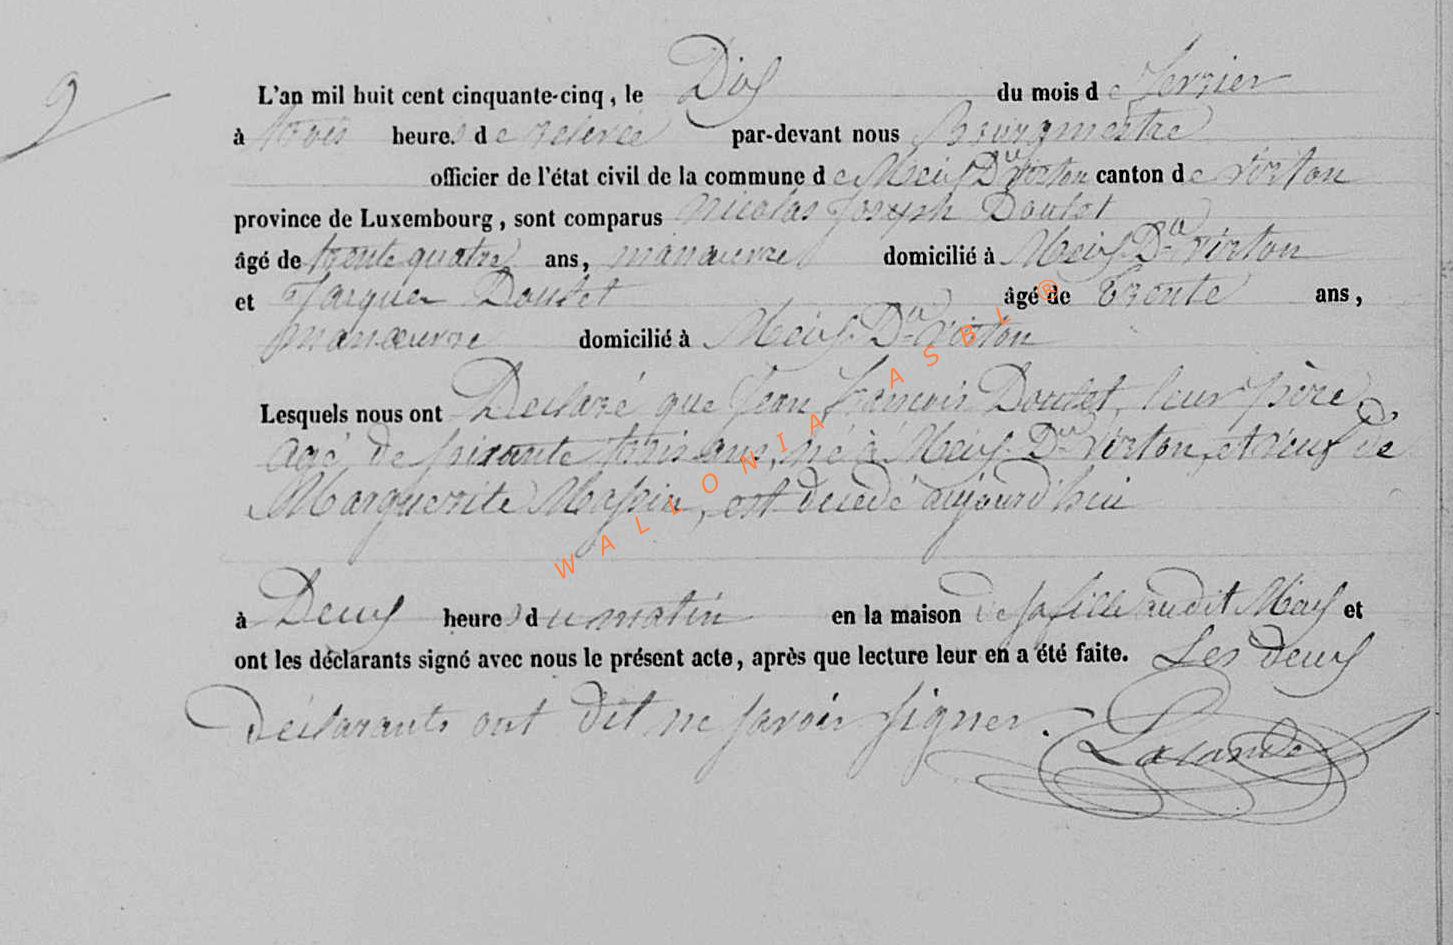 9
L'an mil huit cent cinquante-cinq, le Dix du mois de fevrier
à trois heures de relevée par-devant nous Bourgmestre
officier de l'état civil de la commune de Meix Dt Virton canton de Virton
province de Luxembourg, sont comparus Nicolas Joseph Doulet
âgé de trente quatre ans, manœuvre domicilié à Meix Dt Virton
et Jacques Doulet âgé de trente ans,
manœuvre domicilié à Meix Dt Virton
Lesquels nous ont Déclaré que Jean françois Doulet, leur père,
agé de soixante trois ans, né à Meix Dt Virton, et veuf de
Marguerite Massin, est décedé aujourd'hui
à Deux heures du matin en la maison de sa fille audit Meix et
ont les déclarants signé avec nous le présent acte, après que lecture leur en a été faite. Les deux
déclarants ont dit ne savoir signer.
WALLONIA ASBL ®